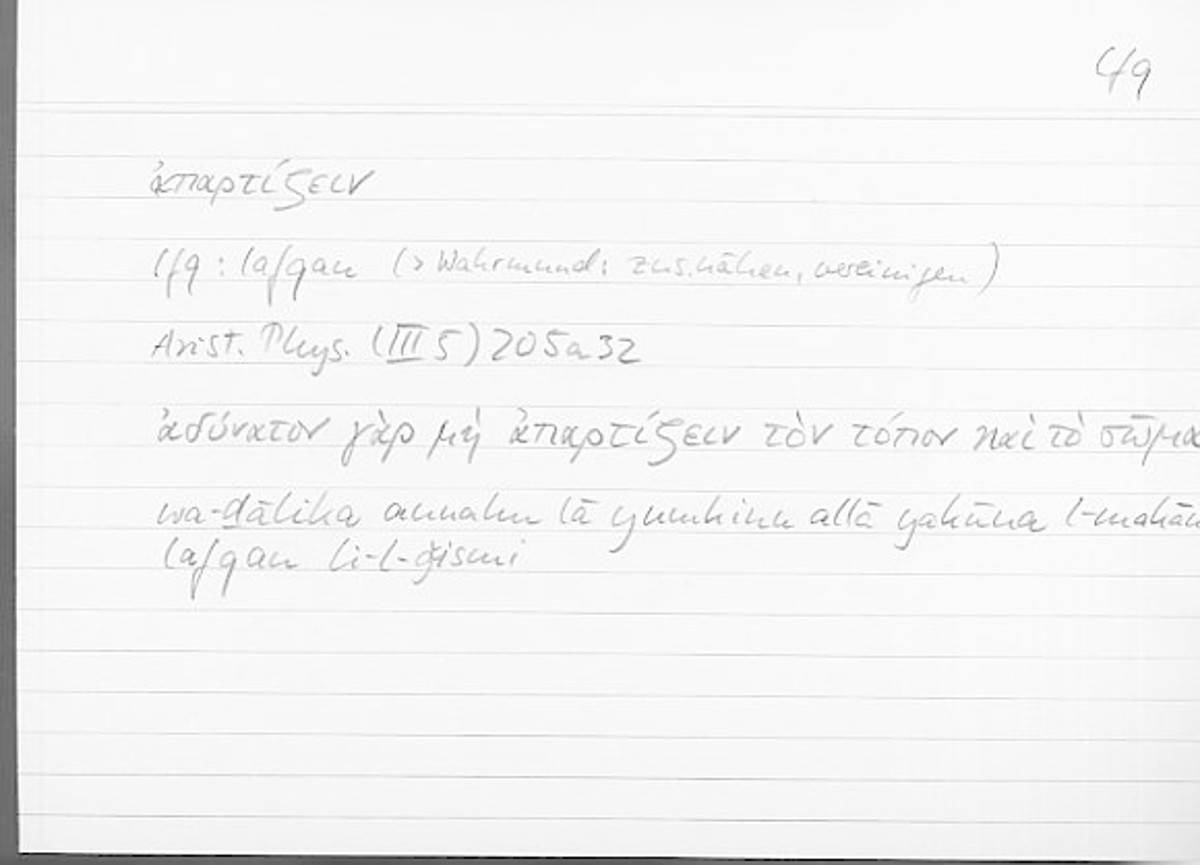 lfq
ἀπαρτίζειν
lfq : lafqan (> Wahrmund: zus.nähen, vereinigen)
Arist. Phys. (III 5) 205a32
ἀδύνατον γὰρ μὴ ἀπαρτίζειν τὸν τόπον καὶ τὸ σῶμα
wa-ḏālika annahu lā yumkinu allā yakūna l-makān
lafqan li-l-ǧismi